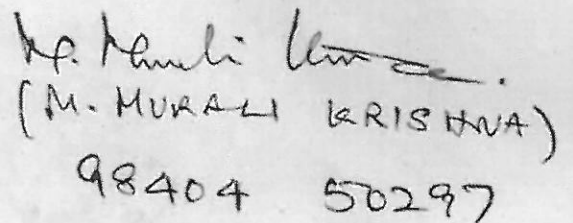 M. Murali Krishna.
(M. MURALI KRISHNA)
98404 50297